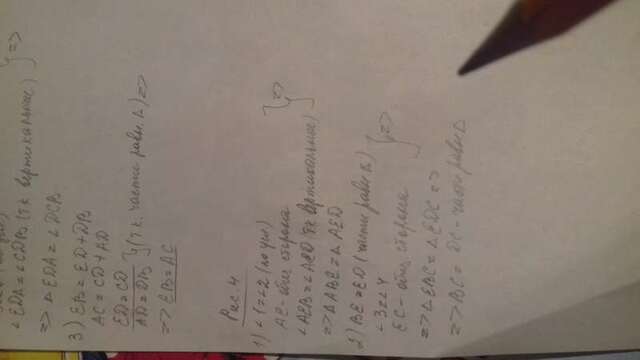 ∠EDA = ∠CDB (тк вертикальные) } =>
=> △EDA = ∠DCB
3) EB = ED + DB
AC = CD + AD
ED = CD
AD = DB } (т.к. части равн. △) =>
=> EB = AC
Рис. 4
1) ∠1 = ∠2 (по усл)
AE - общ. сторона
∠AEB = ∠AED (тк вертикальные) } =>
=> △ABE = △AED
2) BE = ED (части равн. △)
∠3 = ∠4
EC - общ. сторона } =>
=> △EBC = △EDC =>
=> BC = DC - части равн △